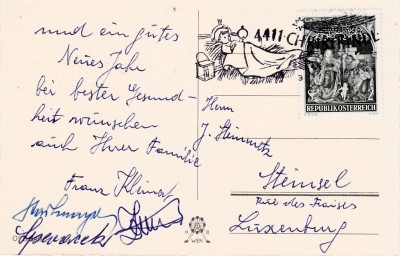 und ein gutes
Neues Jahr
bei bester Gesund-
heit wünschen
auch Ihrer Familie
Franz
4411 CHRISTKINDL
REPUBLIK ÖSTERREICH
Herrn
J. Steinmetz
Steinsel
Rue des Fraises
Luxemburg
WIEN